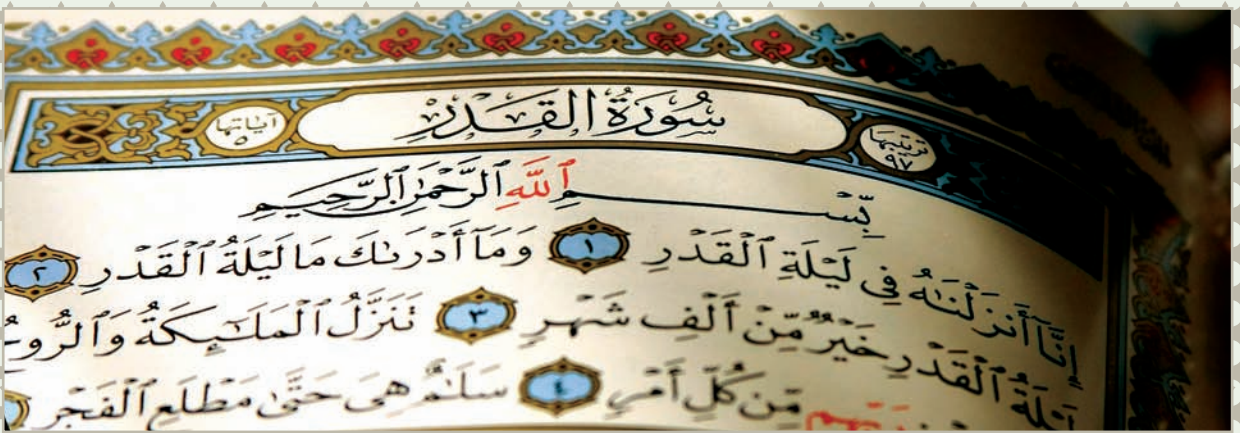 ترتيبها ٩٧ سُورَةُ الْقَدْرِ آيَاتُهَا ٥
بِّسْمِ ٱللَّهِ ٱلرَّحْمَٰنِ ٱلرَّحِيمِ
إِنَّآ أَنزَلْنَٰهُ فِى لَيْلَةِ ٱلْقَدْرِ ١ وَمَآ أَدْرَىٰكَ مَا لَيْلَةُ ٱلْقَدْرِ ٢
لَيْلَةُ ٱلْقَدْرِ خَيْرٌ مِّنْ أَلْفِ شَهْرٍ ٣ تَنَزَّلُ ٱلْمَلَٰٓئِكَةُ وَٱلرُّوحُ
مِّن كُلِّ أَمْرٍ ٤ سَلَٰمٌ هِىَ حَتَّىٰ مَطْلَعِ ٱلْفَجْرِ